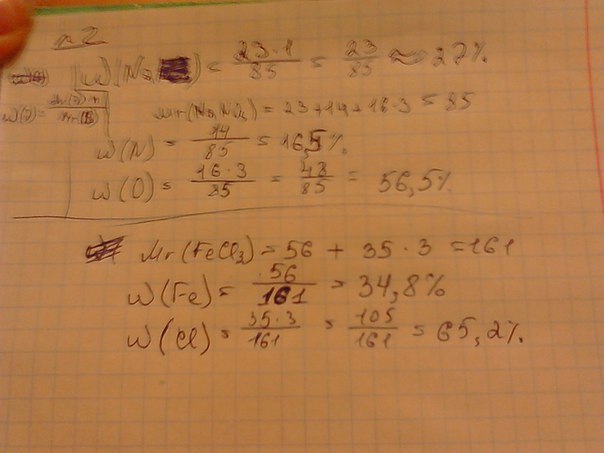 n 2
w(Na) = 23·1/85 = 23/85 ≈ 27%
w(Э) = Ar(Э)·n/Mr(В)
Mr(NaNO3) = 23+14+16·3 = 85
w(N) = 14/85 = 16,5%
w(O) = 16·3/85 = 48/85 = 56,5%
Mr(FeCl3) = 56 + 35·3 = 161
w(Fe) = 56/161 = 34,8%
w(Cl) = 35·3/161 = 105/161 = 65,2%